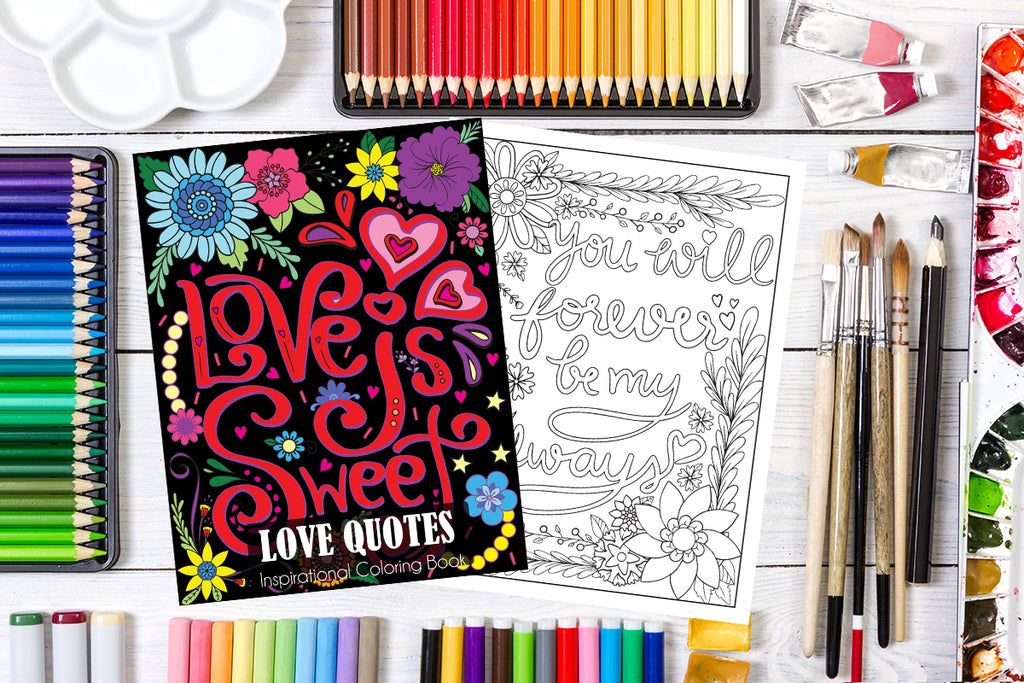 Love
Is
Sweet
LOVE QUOTES
Inspirational Coloring Book
you will
forever
be my
always